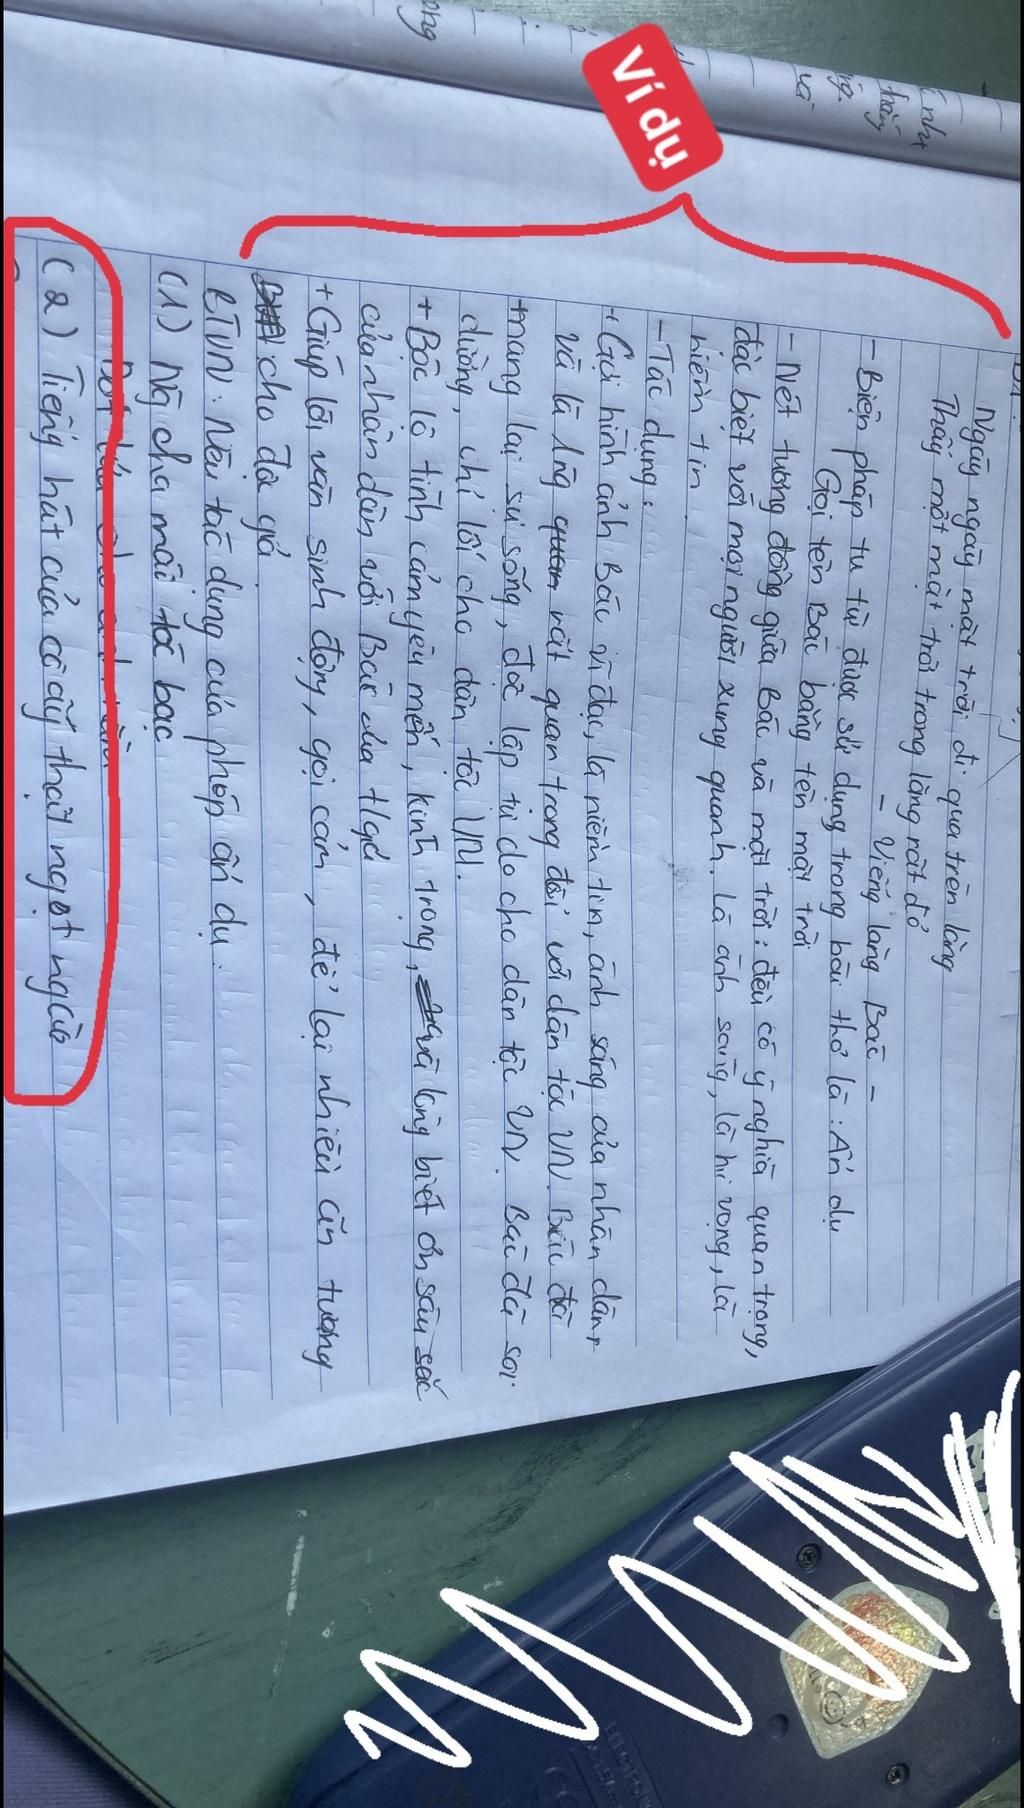 Ví dụ
Ngày ngày mặt trời đi qua trên lăng
Thấy một mặt trời trong lăng rất đỏ
- Viếng lăng Bác -
- Biện pháp tu từ được sử dụng trong bài thơ là: Ẩn dụ
Gọi tên Bác bằng tên mặt trời
- Nét tương đồng giữa Bác và mặt trời: đều có ý nghĩa quan trọng,
đặc biệt với mọi người xung quanh. Là ánh sáng, là hi vọng, là
niềm tin
- Tác dụng:
+ Gợi hình ảnh Bác vĩ đại, là niềm tin, ánh sáng của nhân dân,
Và là quan trọng đối với dân tộc VN. Bác đã
mang lại sự sống, độc lập tự do cho dân tộc VN. Bác đã soi
đường, chỉ lối cho dân tộc VN.
+ Bộc lộ tình cảm yêu mến, kính trọng, và lòng biết ơn sâu sắc
của nhân dân với Bác của tác giả
+ Giúp lời văn sinh động, gợi cảm, để lại nhiều ấn tượng
cho độc giả.
BTVN: Nêu tác dụng của phép ẩn dụ.
(1) Ng cha mái tóc bạc
Đốt lửa cho anh nằm
(2) Tiếng hát của cô ấy thật ngọt ngào